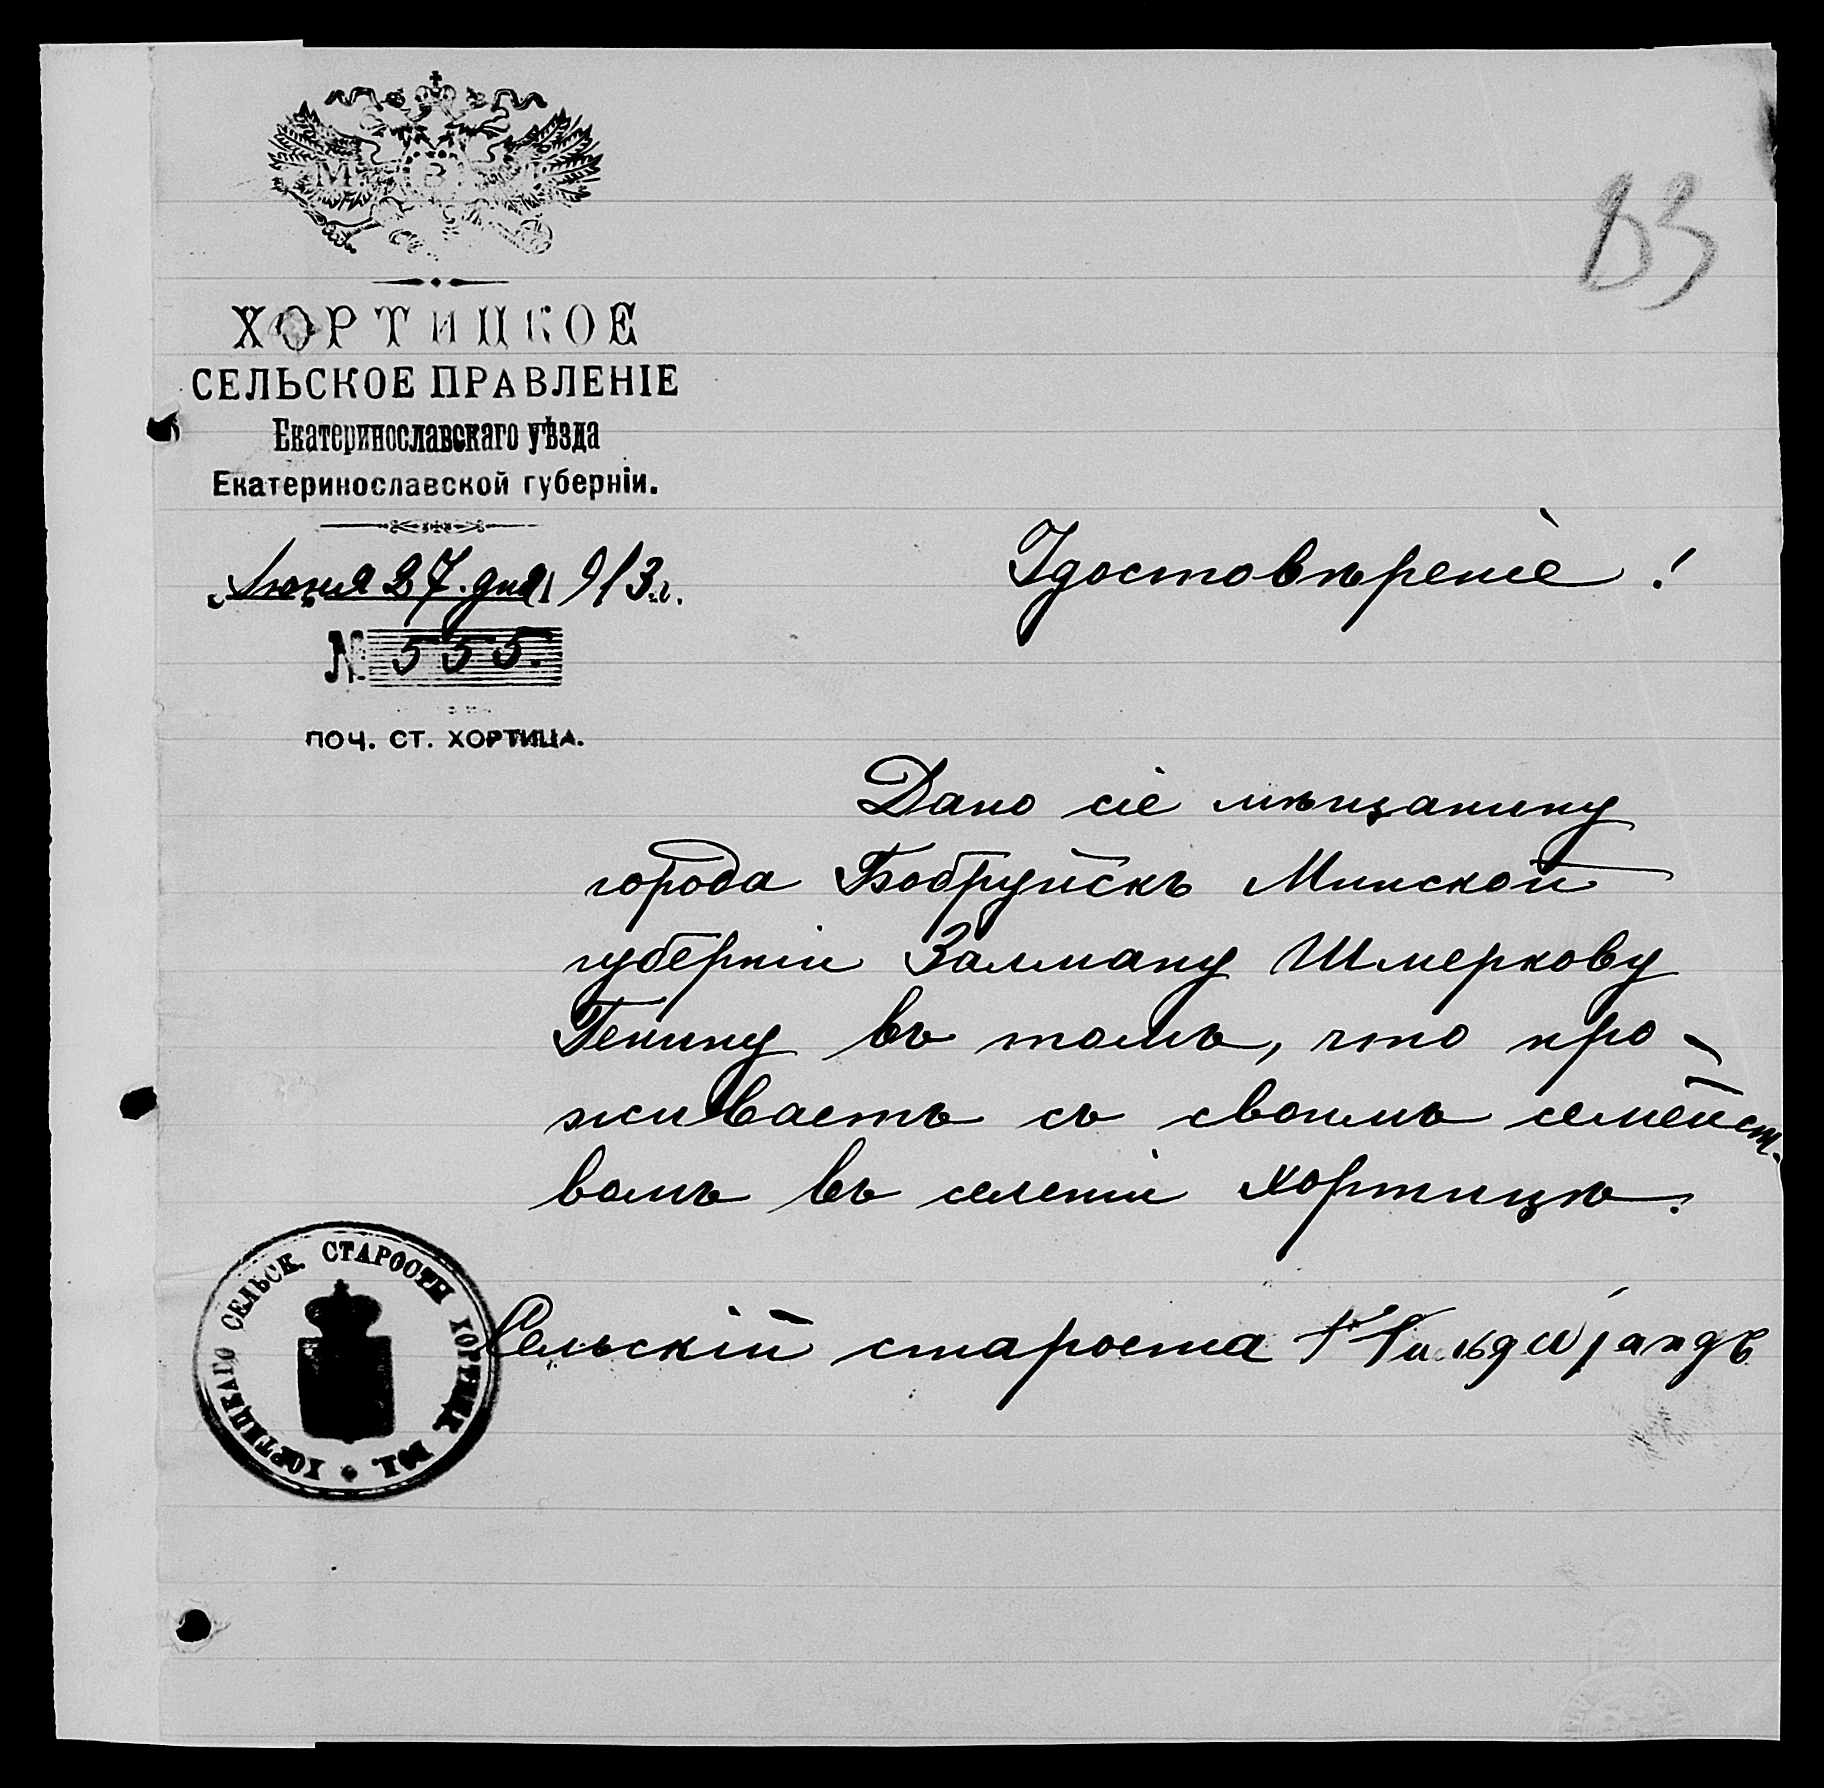 М В
83
ХОРТИЦКОЕ
СЕЛЬСКОЕ ПРАВЛЕНІЕ
Екатеринославскаго уѣзда
Екатеринославской губерніи.
„Іюня 27. дня 1913 г.
№ 555.
ПОЧ. СТ. ХОРТИЦА.
Удостовѣреніе!
Дано сіе мѣщанину
города Бобруйскъ Минской
губерніи Залману Шмеркову
Генину въ томъ, что про-
живаетъ съ своимъ семейст-
вомъ въ селеніи Хортицѣ.
Сельскій староста
ХОРТИЦКАГО СЕЛЬСК. СТАРОСТЫ ХОРТИЦК. ВОЛ.